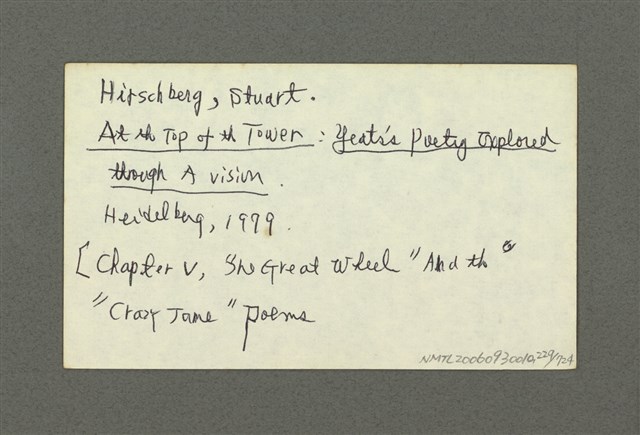 Hirschberg, Stuart.
At th Top of th Tower: Yeats's Poetry Explored
through A vision.
Heidelberg, 1979.
[Chapter V, "Th Great Wheel" And th
"Crazy Jane" poems
NMTL20060930010,229/724